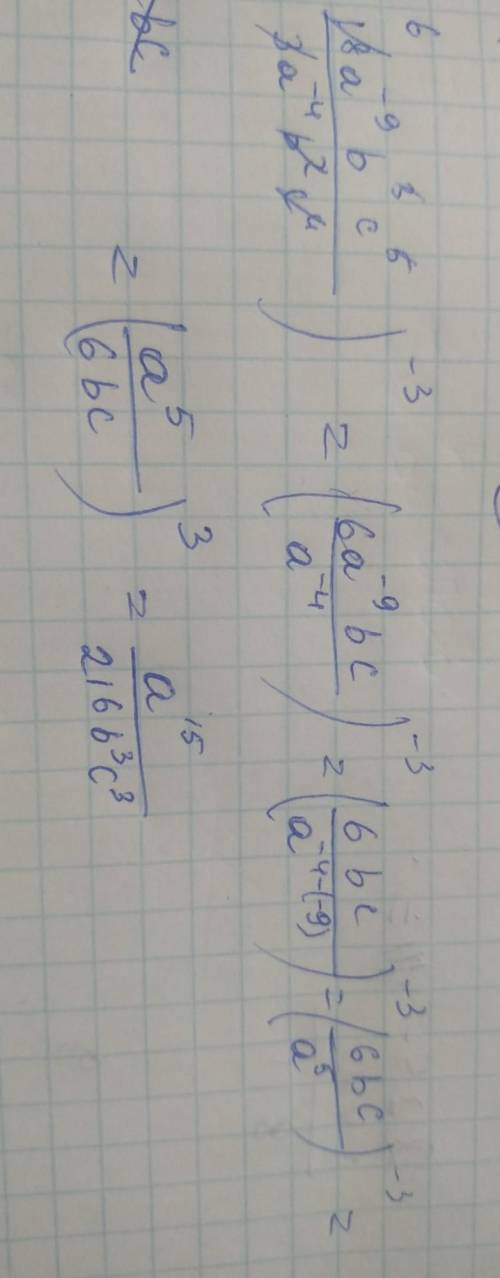 6
(18a⁻⁹b³c⁵ / 3a⁻⁴b²c⁴)⁻³ = (6a⁻⁹bc / a⁻⁴)⁻³ = (6bc / a⁻⁴⁻⁽⁻⁹⁾)⁻³ = (6bc / a⁵)⁻³ =
= (a⁵ / 6bc)³ = a¹⁵ / 216b³c³